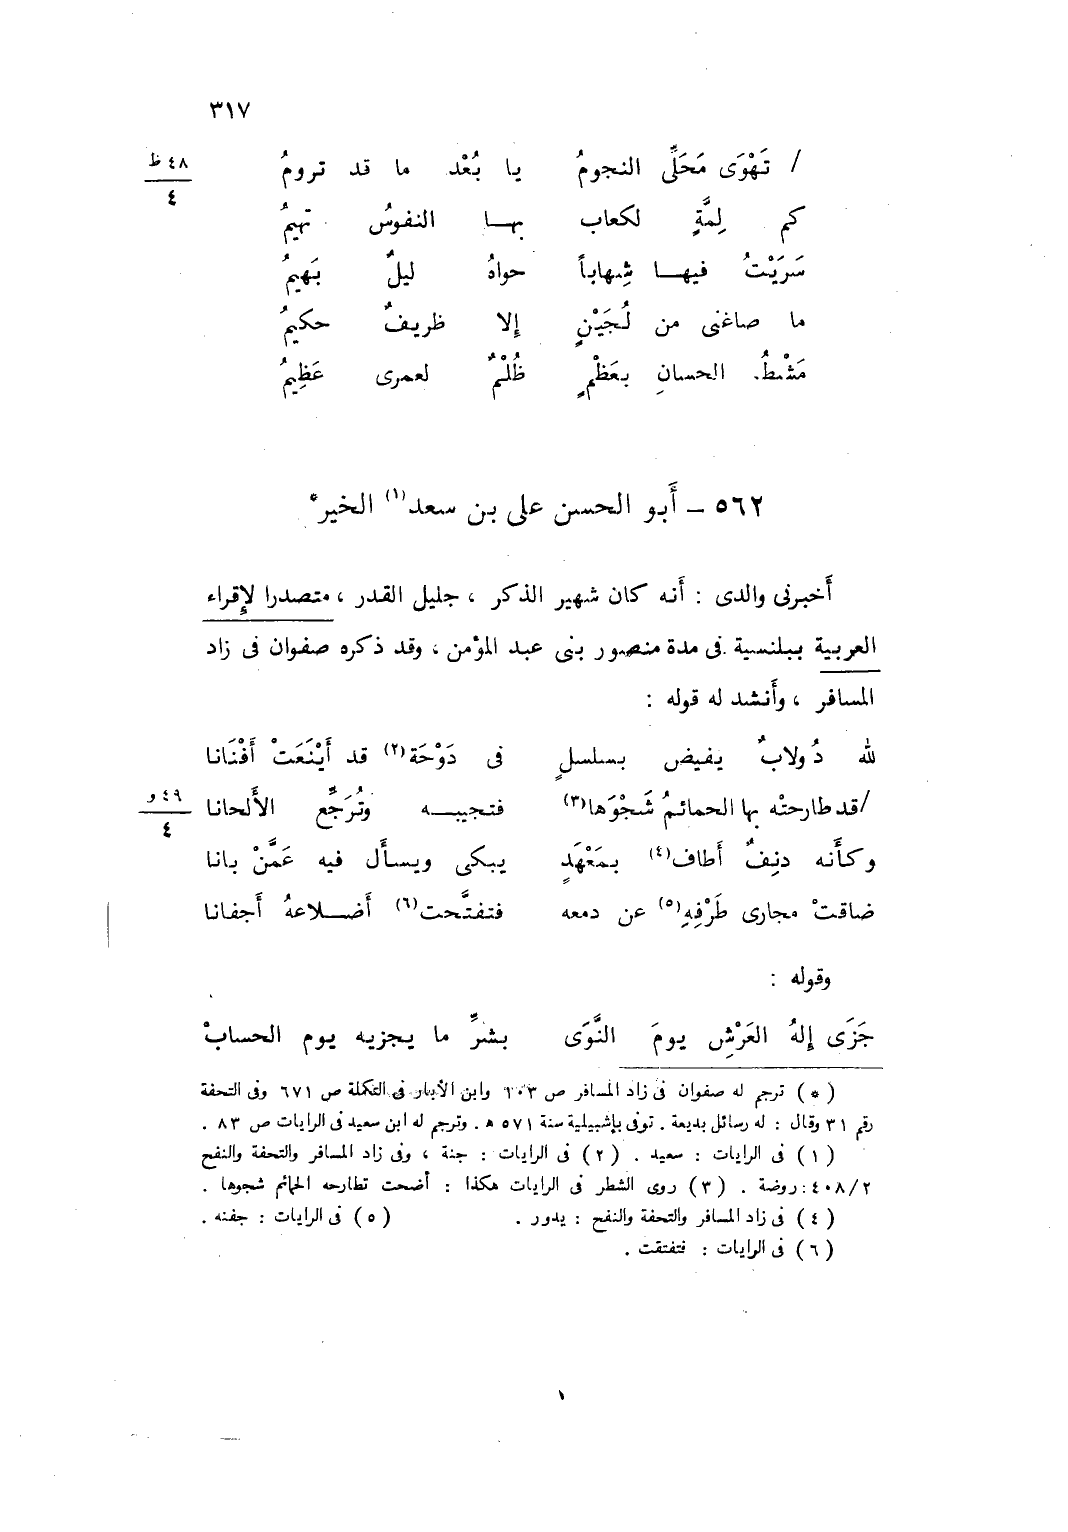 ٣١٧
/ تَهْوَى مَحَلِّى النجومُ يا بُعْد ما قد ترومُ
٤٨ ظ
٤
كم لِمَّةٍ لكعاب بها النفوسُ تهيمُ
سَرَيْتُ فيها شِهاباً حواهُ ليلٌ بَهيمُ
ما صاغنى من لُجَيْنٍ إلا ظريفٌ حكيمُ
مَشْطُ الحسانِ بعَظْمٍ ظُلْمٌ لعمرى عَظِيمُ
٥٦٢ – أَبو الحسن على بن سعد(١) الخير*
أَخبرنى والدى : أَنه كان شهير الذكر ، جليل القدر ، متصدرا لإِقراء
العربية ببلنسية فى مدة منصور بنى عبد المؤمن ، وقد ذكره صفوان فى زاد
المسافر ، وأَنشد له قوله :
لله دُولابٌ يفيض بسلسلٍ فى دَوْحَة(٢) قد أَيْنَعَتْ أَفْنَانا
/قد طارحتْه بها الحمائمُ شَجْوَها(٣) فتجيبه وتُرَجِّع الأَلحانا
٤٩ و
٤
وكأَنه دنِفٌ أَطاف(٤) بمَعْهَدٍ يبكى ويسأَل فيه عَمَّنْ بانا
ضاقتْ مجارى طَرْفِهِ(٥) عن دمعه فتفتَّحت(٦) أَضلاعهُ أَجفانا
وقوله :
جَزَى إِلهُ العَرْشِ يومَ النَّوَى بشرِّ ما يجزيه يوم الحسابْ
(*) ترجم له صفوان فى زاد المسافر ص ١٠٣ وابن الأبار فى التكملة ص ٦٧١ وفى التحفة
رقم ٣١ وقال : له رسائل بديعة . توفى بإشبيلية سنة ٥٧١ ه . وترجم له ابن سعيد فى الرايات ص ٨٣ .
(١) فى الرايات : سعيد . (٢) فى الرايات : جنة ، وفى زاد المسافر والتحفة والنفح
٤٠٨/٢: روضة . (٣) روى الشطر فى الرايات هكذا : أضحت تطارحه الحمائم شجوها .
(٤) فى زاد المسافر والتحفة والنفح : يدور . (٥) فى الرايات : جفنه .
(٦) فى الرايات : فتفتقت .
١